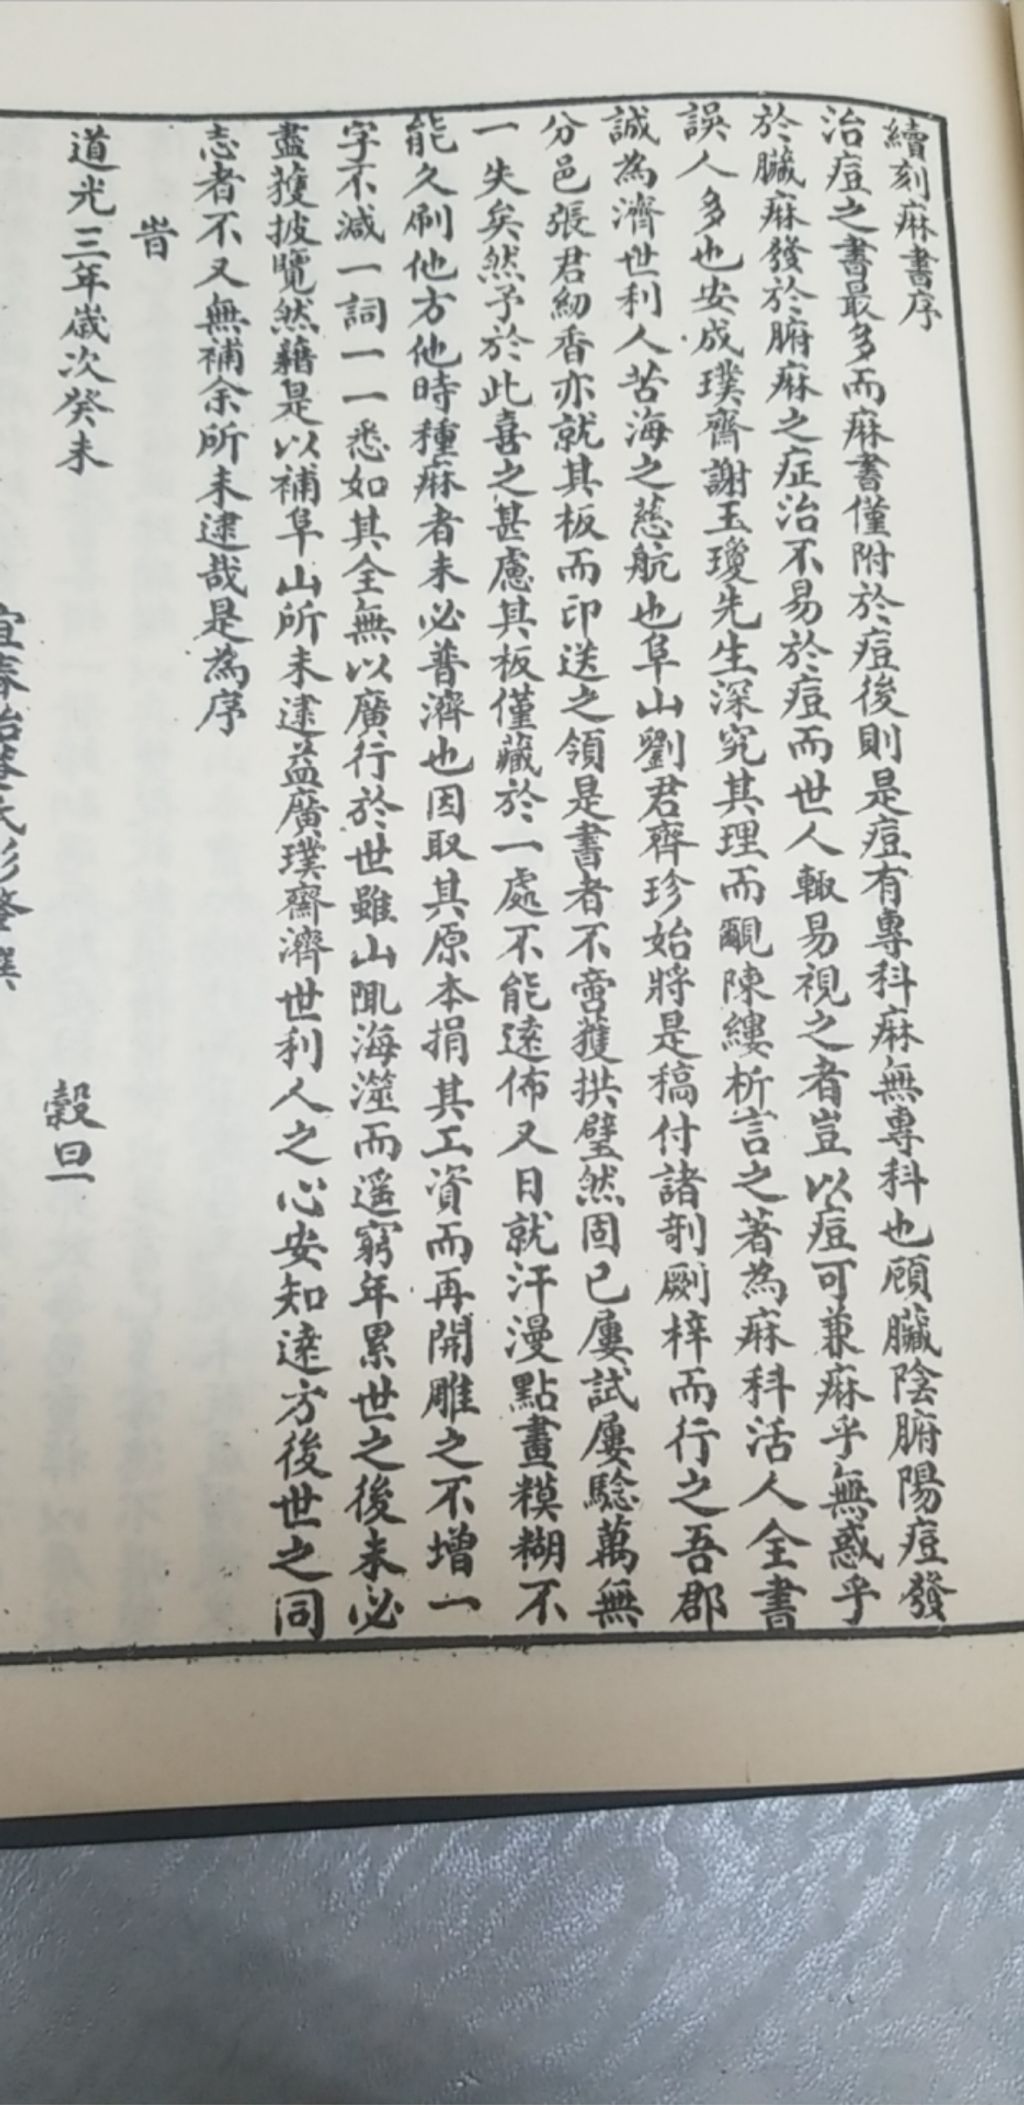 續刻麻書序
治痘之書最多而麻書僅附於痘後則是痘有專科麻無專科也顧臟陰腑陽痘發
於臟麻發於腑麻之症治不易於痘而世人輙易視之者豈以痘可兼麻乎無惑乎
誤人多也安成璞齊謝玉瓊先生深究其理而覼陳縷析言之著為麻科活人全書
誠為濟世利人苦海之慈航也阜山劉君齊珍始將是稿付諸剞劂梓而行之吾郡
分邑張君紉香亦就其板而印送之領是書者不啻獲拱璧然固已屢試屢驗萬無
一失矣然予於此喜之甚慮其板僅藏於一處不能遠佈又日就汗漫點畫糢糊不
能久刷他方他時種麻者未必普濟也因取其原本捐其工資而再開雕之不增一
字不減一詞一一悉如其全無以廣行於世雖山陬海澨而遥窮年累世之後未必
盡獲披覽然藉是以補阜山所未逮益廣璞齋濟世利人之心安知遠方後世之同
志者不又無補余所未逮哉是為序
旹
道光三年歲次癸未 穀旦
宜春 氏彭 撰